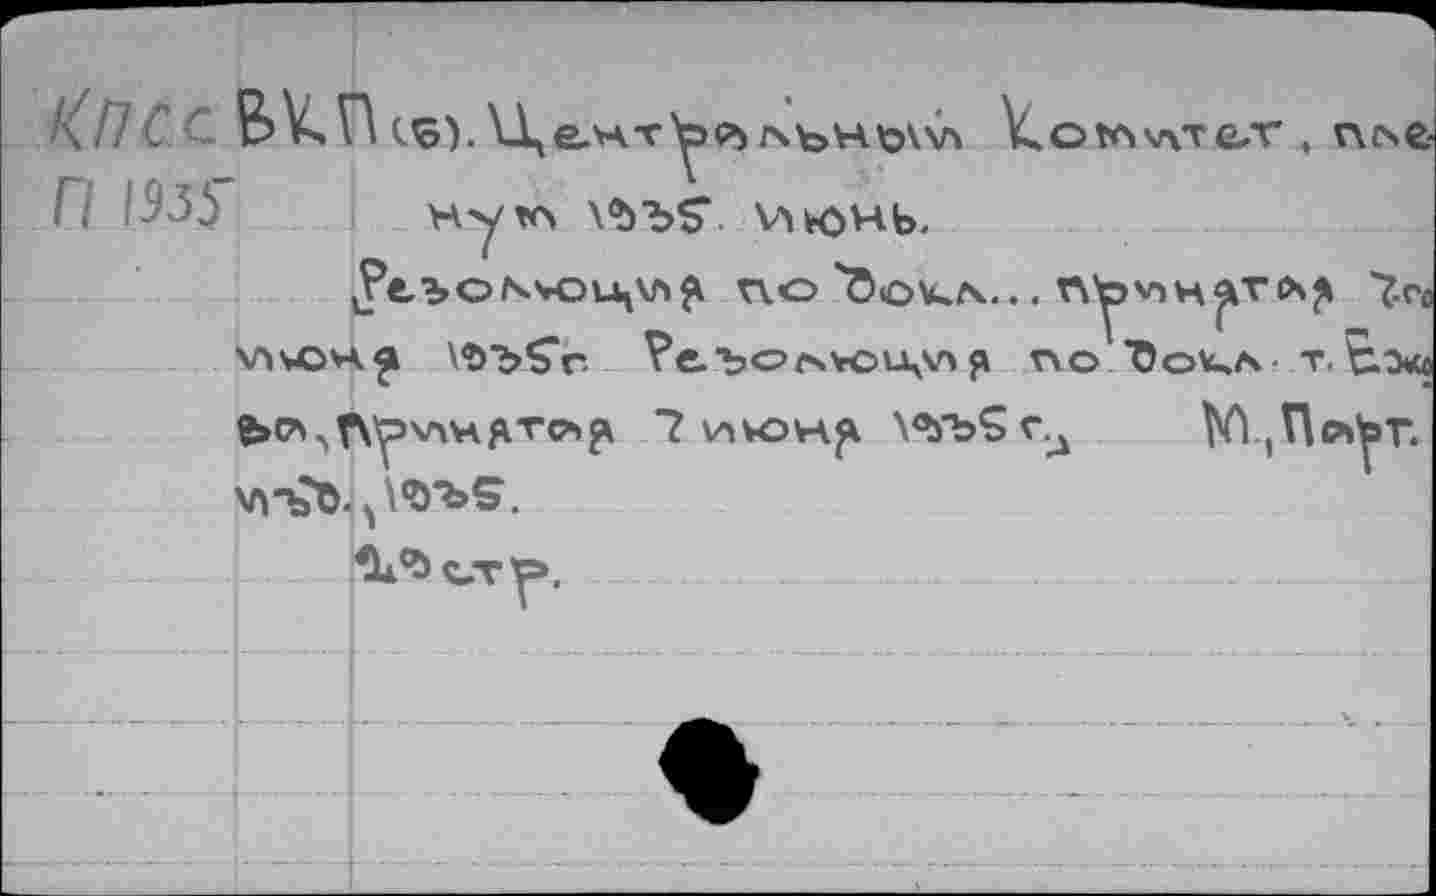 КПСС ВКП(б). Центральный Комитет, пле-
П 1935 нум 1935. июнь.
Резолюция по докл... принятая 7го
июня 1935г Резолюция по докл. т. Ежо
ва, принятая 7 июня 1935 г. М, Парт.
изд., 1935.
29 стр.